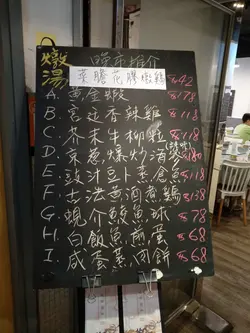 燉湯
晚市推介
菜膽花膠燉雞 $42
A. 黃金蝦
B. 宮廷香辣雞 $118
C. 芥末牛柳粒 $118
D. 京蔥爆炒
E. 豉汁豆卜蒸倉魚
F. 古法黃酒煮雞 $138
G. 蜆介鯪魚球 $78
H. 白飯魚煎蛋 $68
I. 咸蛋蒸肉餅 $68